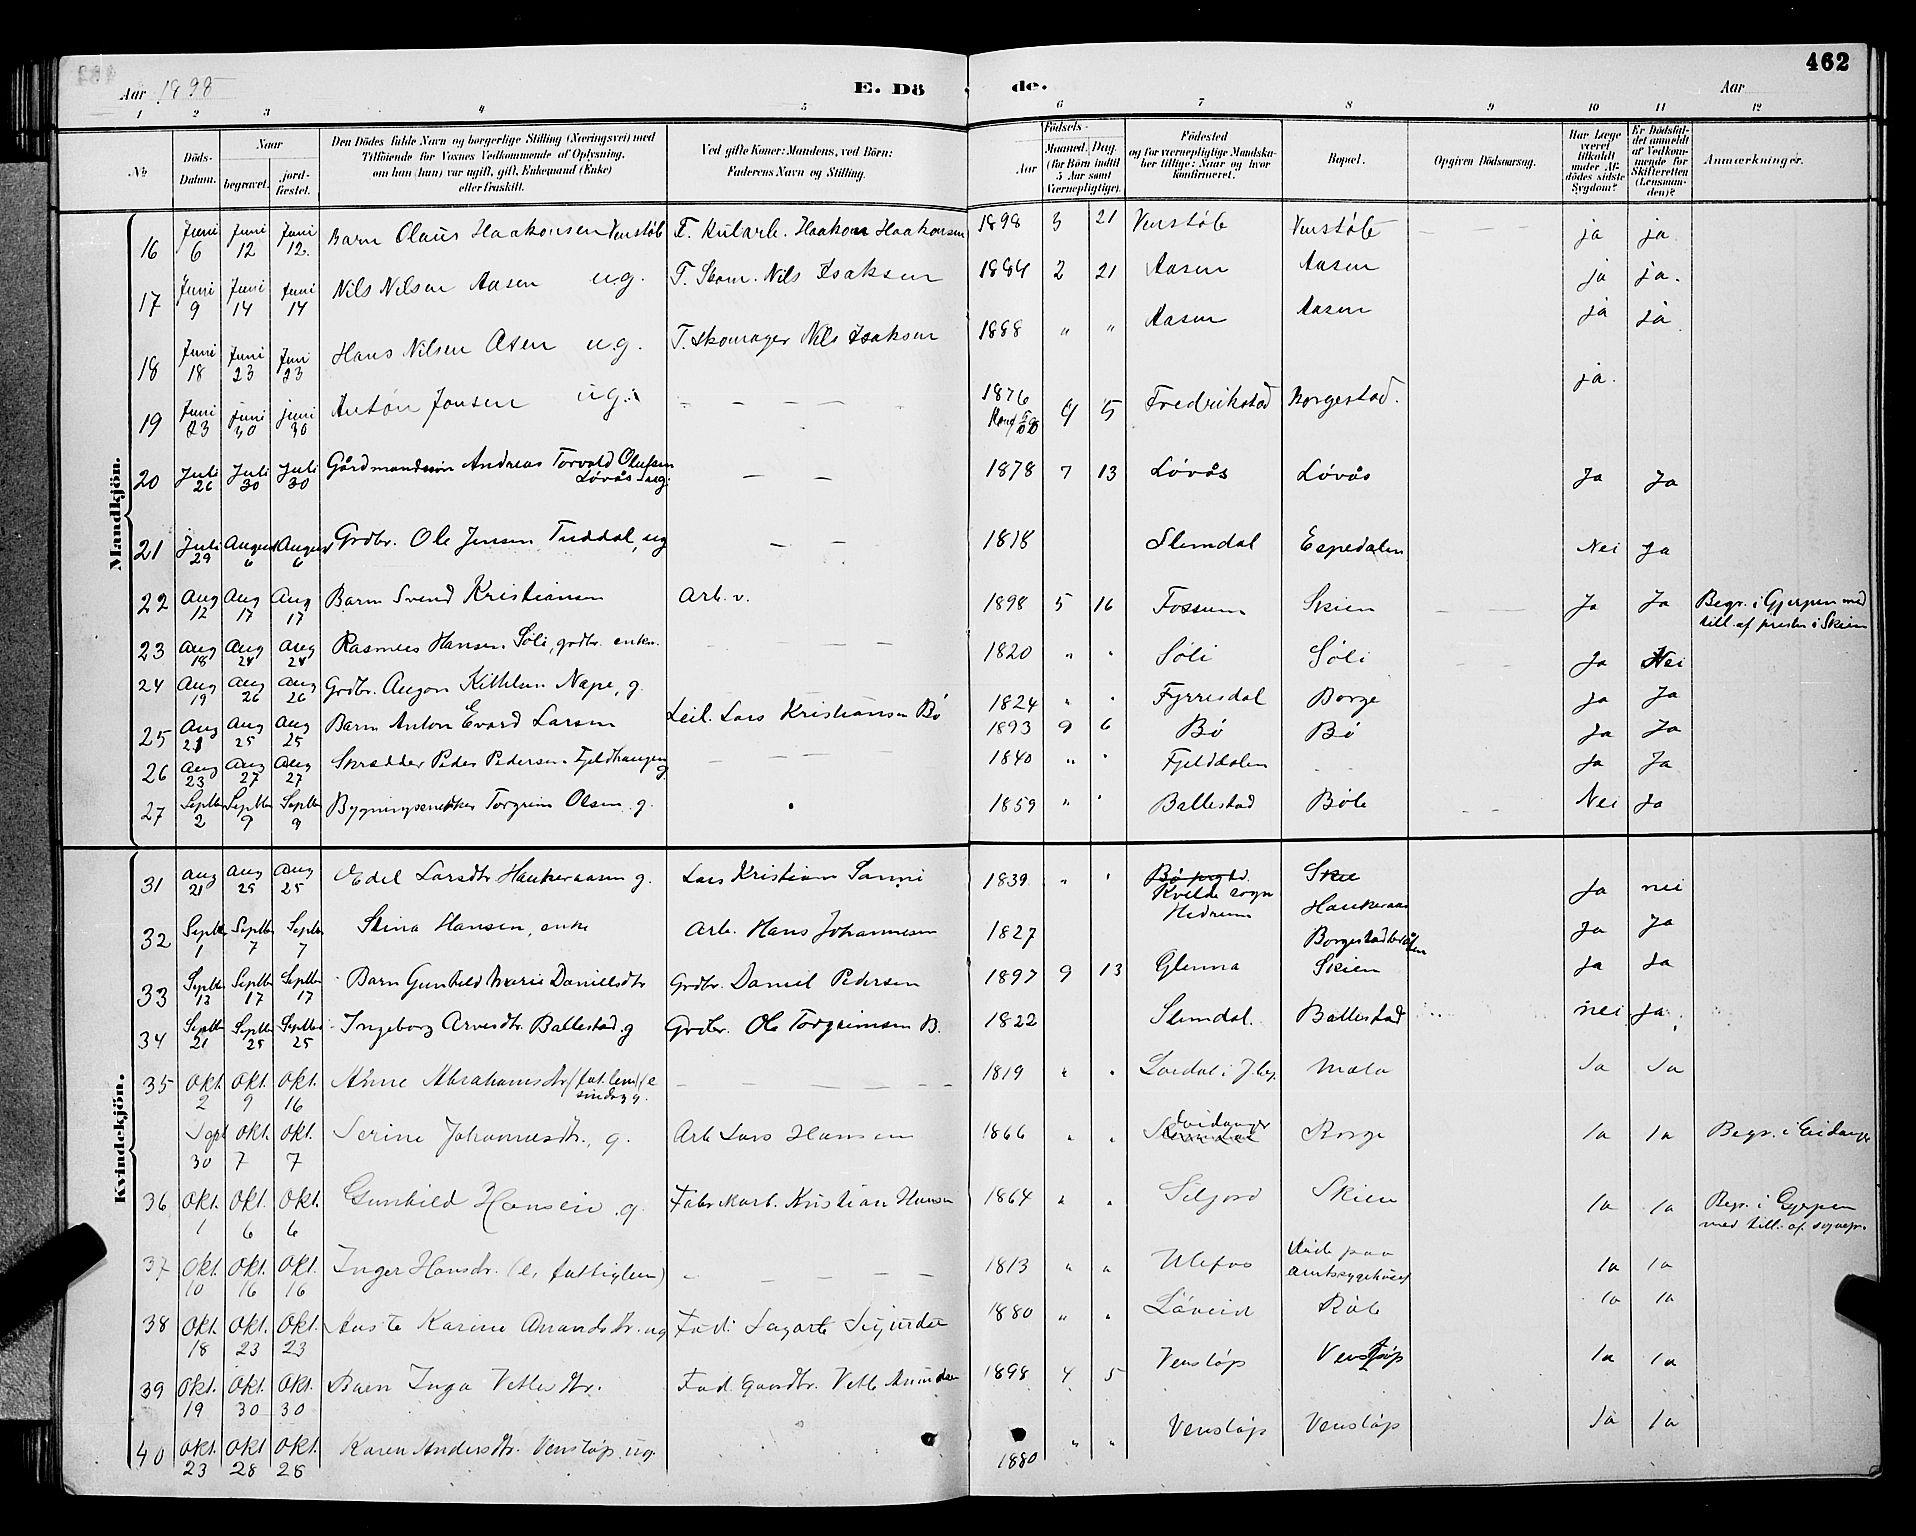 462
Aar 1898 E. Dö de. Aar
1 2 3 4 5 6 7 8 9 10 11 12
№ | Döds-Datum. | Naar begravet. | Naar jordfæstet. | Den Dödes fulde Navn og borgerlige Stilling (Næringsvei) med Tilföiende for Voxnes Vedkommende af Oplysning, om han (hun) var ugift, gift, Enkemand (Enke) eller fraskilt. | Ved gifte Koner: Mandens, ved Börn: Faderens Navn og Stilling. | Födsels- Aar | Maaned. Dag. (for Börn indtil 5 Aar samt Værnepligtige). | Födested og for værnepligtige Mandskaber tillige: Naar og hvor konfirmeret. | Bopæl. | Opgiven Dödsaarsag. | Har Læge været tilkaldt under Afdödes sidste Sygdom? | Er Dödsfaldet anmeldt af Vedkommende for Skifteretten (Lensmanden)? | Anmærkninger.
Mandkjön.
16 Juni 6 Juni 12 Juni 12. Barn Olaus Haakonsen Venstöb F. Haakon Haakonsen 1898 3 21 Venstöb Venstöb — — ja ja
17 Juni 9 Juni 14 Juni 14 Nils Nilsen Aasen u.g. F. Skom. Nils Isaksen 1884 2 21 Aasen Aasen ja ja.
18 Juni 18 Juni 23 Juni 23 Hans Nilsen Asen u.g. F. Skomager Nils Isaksen 1888 " " Aasen Aasen ja ja
19 Juni 23 Juni 30 juni 30 Anton Jonsen u.g. — — — — 1876 4 5 Fredrikstad Borgestad. ja.
20 Juli 26 Juli 30 Juli 30 Gårdmandssön Andreas Torvald Olufsen Løvås ug. — — 1878 7 13 Løvås Løvås Ja Ja
21 Juli 29 August 6 August 6 Grdbr. Ole Jensen Tuddal, ug — — 1818 Slemdal Espedalen Nei Ja
22 Aug 12 Aug 17 Aug 17 Barn Svend Kristiansen Arb. v. 1898 5 16 Fossum Skien — — Ja Ja Begr. i Gjerpen med till. af presten i Skien
23 Aug 18 Aug 24 Aug 24 Rasmus Hansen Søli, grdbr. enkm. — — — 1820 " " Søli Søli Ja Nei
24 Aug 19 Aug 26 Aug 26 Grdbr. Augon Kittilsen Nape, g. 1824 " " Fyrresdal Borge Ja Ja
25 Aug 21 Aug 25 Aug 25 Barn Anton Evard Larsen Leil. Lars Kristiansen Bø 1893 9 6 Bø Bø Ja Ja
26 Aug 23 Aug 27 Aug 27 Skrædder Peder Pedersen Fjeldhaugen g. — — — 1840 " " Fjelddalen - - Ja Ja
27 Septbr 2 Septbr 9 Septbr 9 Bygningssnedker Torgrim Olsen. g. 1859 " " Ballestad Bøle Nei Ja
Kvindekjön.
31 Aug 21 Aug 25 Aug 25 Edel Larsdtr Haukeraasen g. Lars Kristian Sanni 1839 " " Kvelde sogn Hedrum Haukeraas Ja nei
32 Septbr 1 Septbr 7 Septbr 7 Stina Hansen, enke Arb. Hans Johannesen 1827 Ja Ja
33 Septbr 13 Septbr 17 Septbr 17 Barn Gunhild Marie Danielsdtr Grdbr. Daniel Pedersen 1897 9 13 Glenna Skien Ja Ja
34 Septbr 21 Septbr 25 Septbr 25 Ingeborg Arvesdtr Ballestad g Grdbr. Ole Torgrimsen B. 1822 Slemdal. Ballestad nei Ja
35 Okt. 2 Okt. 9 Okt. 16 Anne Abrahamsdtr (fat. lem) (e sindssyg. — — — — 1819 " " Mæla Ja Ja
Sept 30 Okt. 7 Okt. 7 Serine Johannesdtr., g. Arb Lars Hansen 1866 " " Eidanger Borge Ja Ja Begr. i Eidanger
36 Okt. 1 Okt. 6 Okt. 6 Gunhild Hansen. g. Fabrikarb. Kristian Hansen 1864 " " Siljord Skien Ja Ja Begr. i Gjerpen med till. af sognepr.
37 Okt. 10 Okt. 16 Okt. 16 Inger Hansdr. (e, fattiglem) — — — — 1813 " " Ulefos Døde paa amtssygehuset Ja Ja
38 Okt. 18 Okt. 23 Okt. 23 Karine Amundsdtr. ug Fad. 1880 " " Løveid Bøle Ja Ja
39 Okt. 19 Okt. 30 Okt. 30 Barn Inga Vetlesdtr. Fad. Gaardbr. Vetle Amundsen 1898 4 5 Venstøp Venstøp Ja Ja
40 Okt. 23 Okt 28 Okt. 28 Karen Andersdtr. Venstøp. ug. 1880 " " Venstøp Venstøp Ja Ja